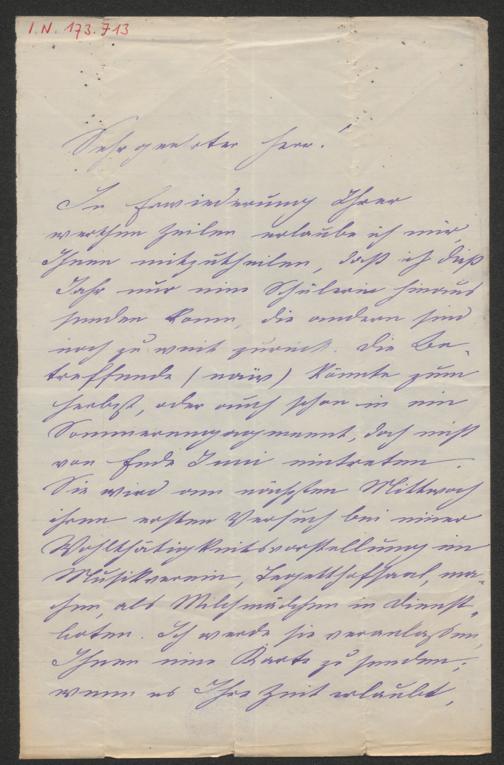 I.N. 173.713
Sehr geehrter Herr!
In Erwiederung Ihrer
werthen Zeilen erlaube ich mir
Ihnen mitzutheilen, daß ich dieß
Jahr nur eine Schülerin hinaus
senden kann, die andern sind
noch zu weit zurück. Die Be-
treffende (naiv) könnte zum
Herbst, oder auch schon in ein
Sommerengagement, doch nicht
vor Ende Juni eintreten.
Sie wird am nächsten Mittwoch
ihren ersten Versuch bei einer
Wohlthätigkeitsvorstellung im
Musikverein, Tegetthofsaal, ma-
chen, als Milchmädchen in Dienst-
boten. Ich werde sie veranlassen,
Ihnen eine Karte zu senden;
wenn es Ihre Zeit erlaubt,